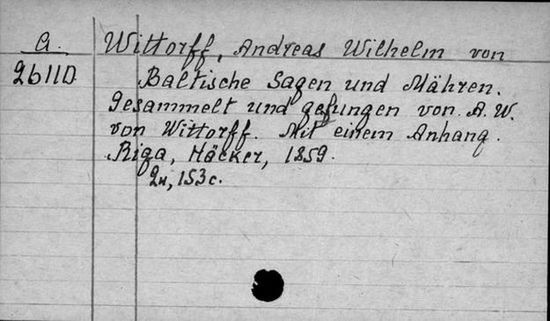 A.
26110
Wittorff, Andreas Wilhelm von
Baltische Sagen und Mähren.
Gesammelt und gesungen von A. W.
von Wittorff. Mit einem Anhang.
Riga, Häcker, 1859.
2н, 153 с.